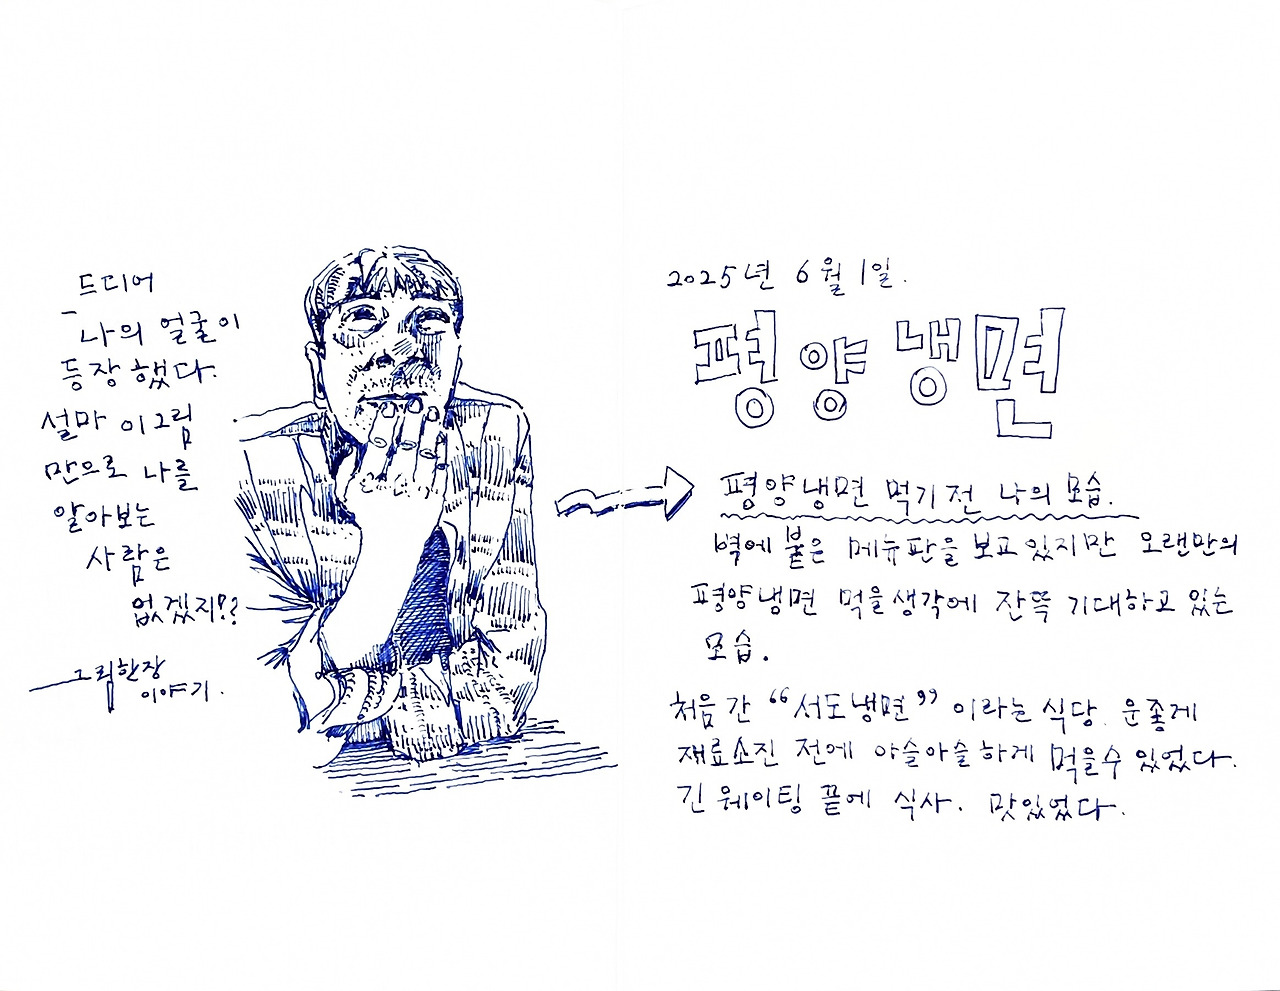 드디어
나의 얼굴이
등장했다.
설마 이그림
만으로 나를
알아보는
사람은
없겠지!?
그림한장
이야기.
2025년 6월 1일.
평양냉면
평양냉면 먹기전 나의 모습.
벽에 붙은 메뉴판을 보고있지만 오랜만의
평양냉면 먹을생각에 잔뜩 기대하고 있는
모습.
처음 간 “서도냉면” 이라는 식당. 운좋게
재료소진 전에 아슬아슬하게 먹을수 있었다.
긴 웨이팅 끝에 식사. 맛있었다.